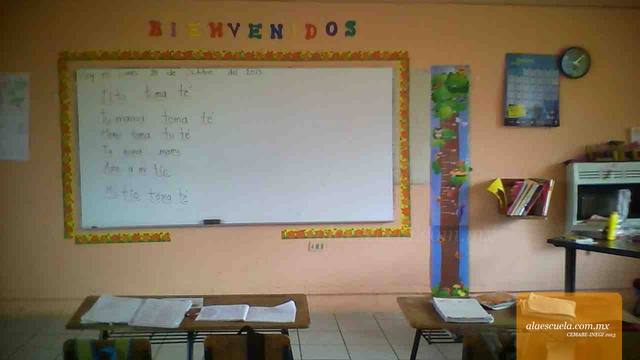 BIENVENIDOS
Hoy es lunes 28 de octubre del 2013
Tito toma té
Tu mamá toma té
Memo toma tu té
Amo a mi tío
Mi tío toma té
alaescuela.com.mx
CEMABE-INEGI 2013